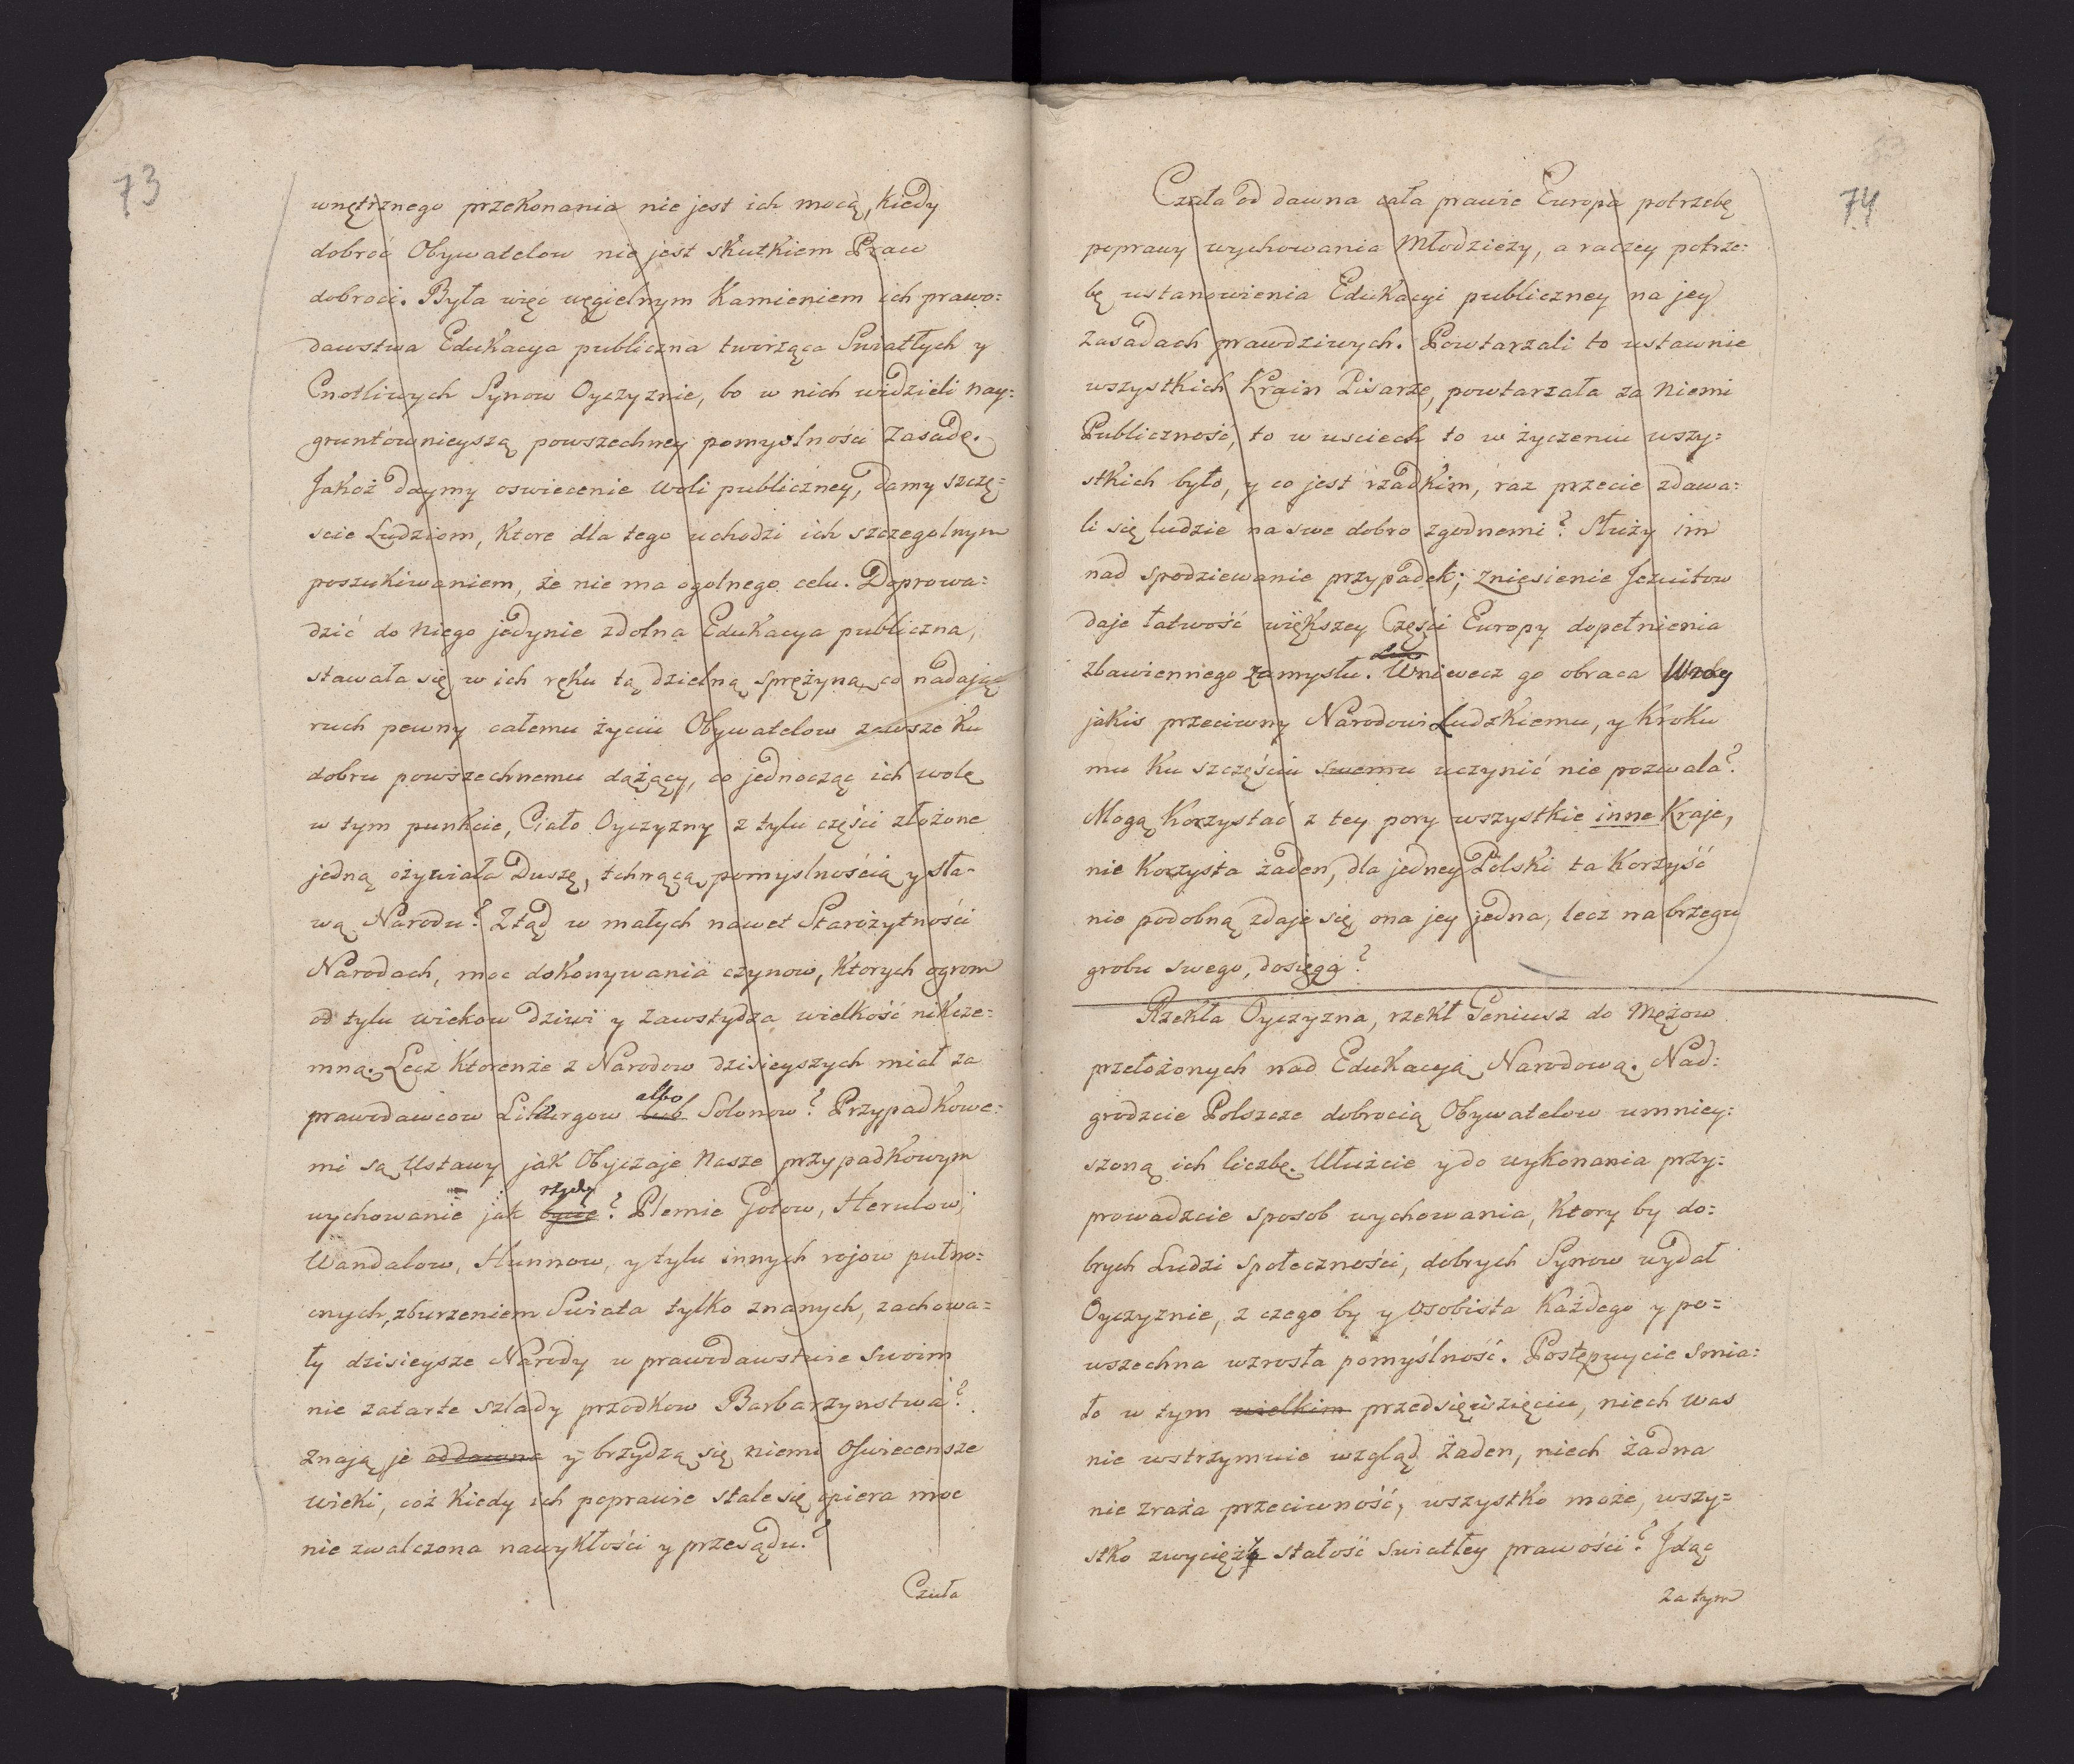 73
wnętrznego przekonania nie jest ich mocą, kiedy
dobroć Obywatelow nie jest skutkiem Praw
dobroci. Była więc węgielnym Kamieniem ich prawo:
dawstwa Edukacya publiczna tworząca Swiatłych y
Cnotliwych Synow Oyczyznie, bo w nich widzieli nay:
gruntownieyszą powszechney pomyslności Zasadę.
Jakoż daymy oswiecenie woli publiczney, damy szczę:
scie Ludziom, Ktore dla tego uchodzi ich szczegolnym
poszukiwaniem, że nie ma ogolnego celu. Doprowa:
dzić do niego jedynie zdolna Edukacya publiczna,
stawała się w ich ręku tą dzielną sprężyną, co nadając
ruch pewny całemu życiu Obywatelow zawsze ku
dobru powszechnemu dążący, co jednocząc ich wolę
w tym punkcie, Ciało Oyczyzny z tylu części złożone
jedną ożywiała Duszę, tchnącą pomyslnością y sła-
wą Narodu? Ztąd w małych nawet Starożytności
Narodach, moc dokonywania czynow, Ktorych ogrom
od tylu wiekow dziwi y zawstydza wielkość nikcze:
mną. Lecz Ktorenże z Narodow dzisieyszych miał za
prawodawcow Likurgow lub albo Solonow? Przypadkowe:
mi są Ustawy jak Obyczaje Nasze przypadkowym
wychowanie jak bycie rządy? Plemie Gotow, Herulow,
Wandalow, Hunnow, y tylu innych rojow pułno:
cnych, zburzeniem Swiata tylko znanych, zachowa:
ły dzisieysze Narody w prawodawstwie swoim
nie zatarte szlady przodkow Barbarzynstwa?
Znają je oddawna y brzydzą się niemi Oswiecensze
wieki, coż kiedy ich poprawie stale się opiera moc
nie zwalczona nawykłości y przesądu?
Czuła
74
Czuła od dawna cała prawie Europa potrzebę
poprawy wychowania Młodzieży, a raczey potrze:
bę ustanowienia Edukacyi publiczney na jey
zasadach prawdziwych. Powtarzali to ustawnie
wszystkich Krain Pisarze, powtarzała za niemi
Publiczność, to w usciech to w życzeniu wszy:
stkich było, y co jest rzadkim, raz przecie zdawa:
li się ludzie na swe dobro zgodnemi? Służy im
nad spodziewanie przypadek; zniesienie Jezuitow
daje łatwość większey Części Europy dopełnienia
zbawiennego zamysłu. Wniewecz go obraca Wrog
jakis przeciwny Narodowi Ludzkiemu, y Kroku
mu ku szczęściu swemu uczynić nie pozwala?
Mogą Korzystać z tey pory wszystkie inne Kraje,
nie Korzysta żaden, dla jedney Polski ta Korzyść
nie podobną zdaje się, ona jey jedna, lecz na brzegu
grobu swego, dosięga?
Rzekła Oyczyzna, rzekł Geniusz do Mężow
przełożonych nad Edukacyą Narodową. Nad:
grodzcie Polszcze dobrocią Obywatelow umniey:
szoną ich liczbę. Ułużcie y do wykonania przy:
prowadzcie sposob wychowania, Ktory by do:
brych Ludzi społeczności, dobrych Synow wydał
Oyczyznie, z czego by y osobista Każdego y po:
wszechna wzrosła pomyślność. Postępuycie smia:
ło w tym wielkim przedsięwzięciu, niech was
nie wstrzymuie wzgląd żaden, niech żadna
nie zraża przeciwność, wszystko może, wszy:
stko zwycięży stałość swiatłey prawości? Jdąc
za tym